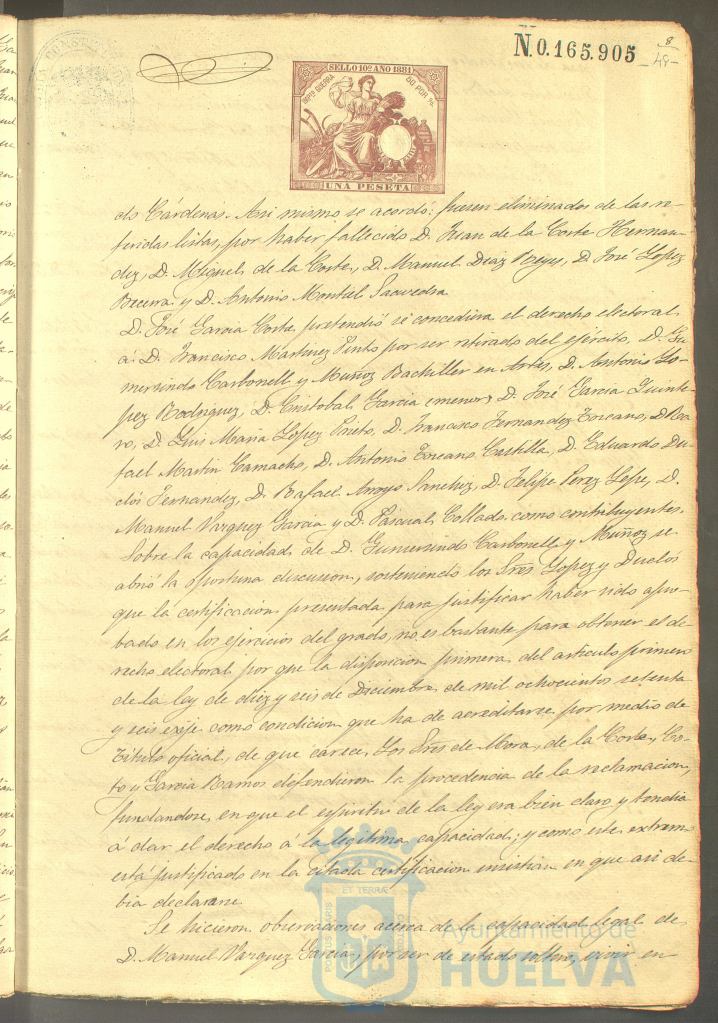 N. 0.165.905
8
48
SELLO 10º AÑO 1881
IMPTO GUERRA
50 POR %
UNA PESETA
do Cárdenas. Asi mismo se acordó: fuesen eliminados de las re-
feridas listas, por haber fallecido D. Juan de la Corte Hernan-
dez, D. Miguel de la Corte, D. Manuel Diaz Reyes, D. José Lopez
Becerra y D. Antonio Montiel Saavedra
D. José Garcia Corte, pretendió se concediera el derecho electoral
á D. Francisco Martinez Pinto por ser retirado del ejército, D. Gu-
mersindo Carbonell y Muñoz Bachiller en Artes, D. Antonio Lo-
pez Rodriguez, D. Cristobal Garcia (menor) D. José Garcia Quinte-
ro, D. Luis Maria Lopez Prieto, D. Francisco Fernandez Toscano, D. Ra-
fael Martin Camacho, D. Antonio Toscano Castilla, D. Eduardo Du-
clós Fernandez, D. Rafael Arroyo Sanchez, D. Felipe Perez Lepe, D.
Manuel Vazquez Garcia y D. Pascual Collado como contribuyentes.
Sobre la capacidad de D. Gumersindo Carbonell y Muñoz se
abrió la oportuna discusion, sosteniendo los Sres Lopez y Duclós
que la certificacion presentada para justificar haber sido apro-
bado en los ejercicios del grado, no es bastante para obtener el de-
recho electoral por que la disposicion primera del articulo primero
de la ley de diez y seis de Diciembre de mil ochocientos setenta
y seis exije como condicion que ha de acreditarse por medio de
Titulo oficial, de que carece. Los Sres de Mora, de la Corte, Co-
to y Garcia Ramos defendieron la procedencia de la reclamacion,
fundandose, en que el espiritu de la ley era bien claro y tendia
á dar el derecho á la legitima capacidad; y como este extremo
está justificado en la citada certificacion insistian en que asi de-
bia declararse
Se hicieron observaciones acerca de la capacidad legal de
D. Manuel Vazquez Garcia, por ser de estado soltero, vivir en
PORTUS MARIS
ET TERRÆ
CUSTODIA
Ayuntamiento de
HUELVA